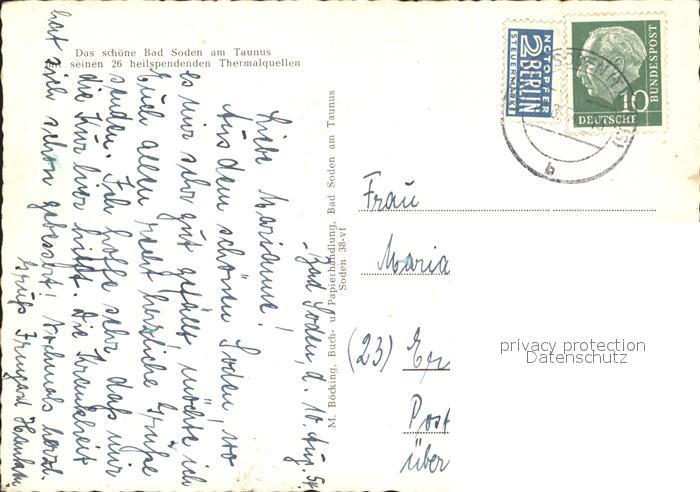 Das schöne Bad Soden am Taunus
mit seinen 26 heilspendenden Thermalquellen
Bad Soden, d. 10. Aug. 54
Liebe Marianne!
Aus dem schönen Soden, wo
es mir sehr gut gefällt, möchte ich
Euch allen recht herzliche Grüße
senden. Ich hoffe sehr daß mir
die Kur hier hilft. Die Krankheit
hat sich schon gebessert! Nochmals herzl.
Grüße Irmgard
M. Böcking, Buch- u. Papierhandlung, Bad Soden am Taunus
Soden 38-vf
NOTOPFER
2 BERLIN
STEUERMARKE
10
DEUTSCHE
BUNDESPOST
b
Frau
Maria
(23) Er
Post
über
privacy protection
Datenschutz